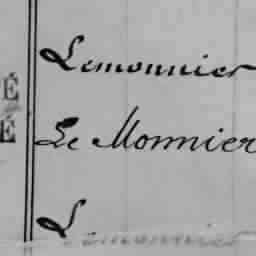 É
Lemonnier
É
Le Monnier